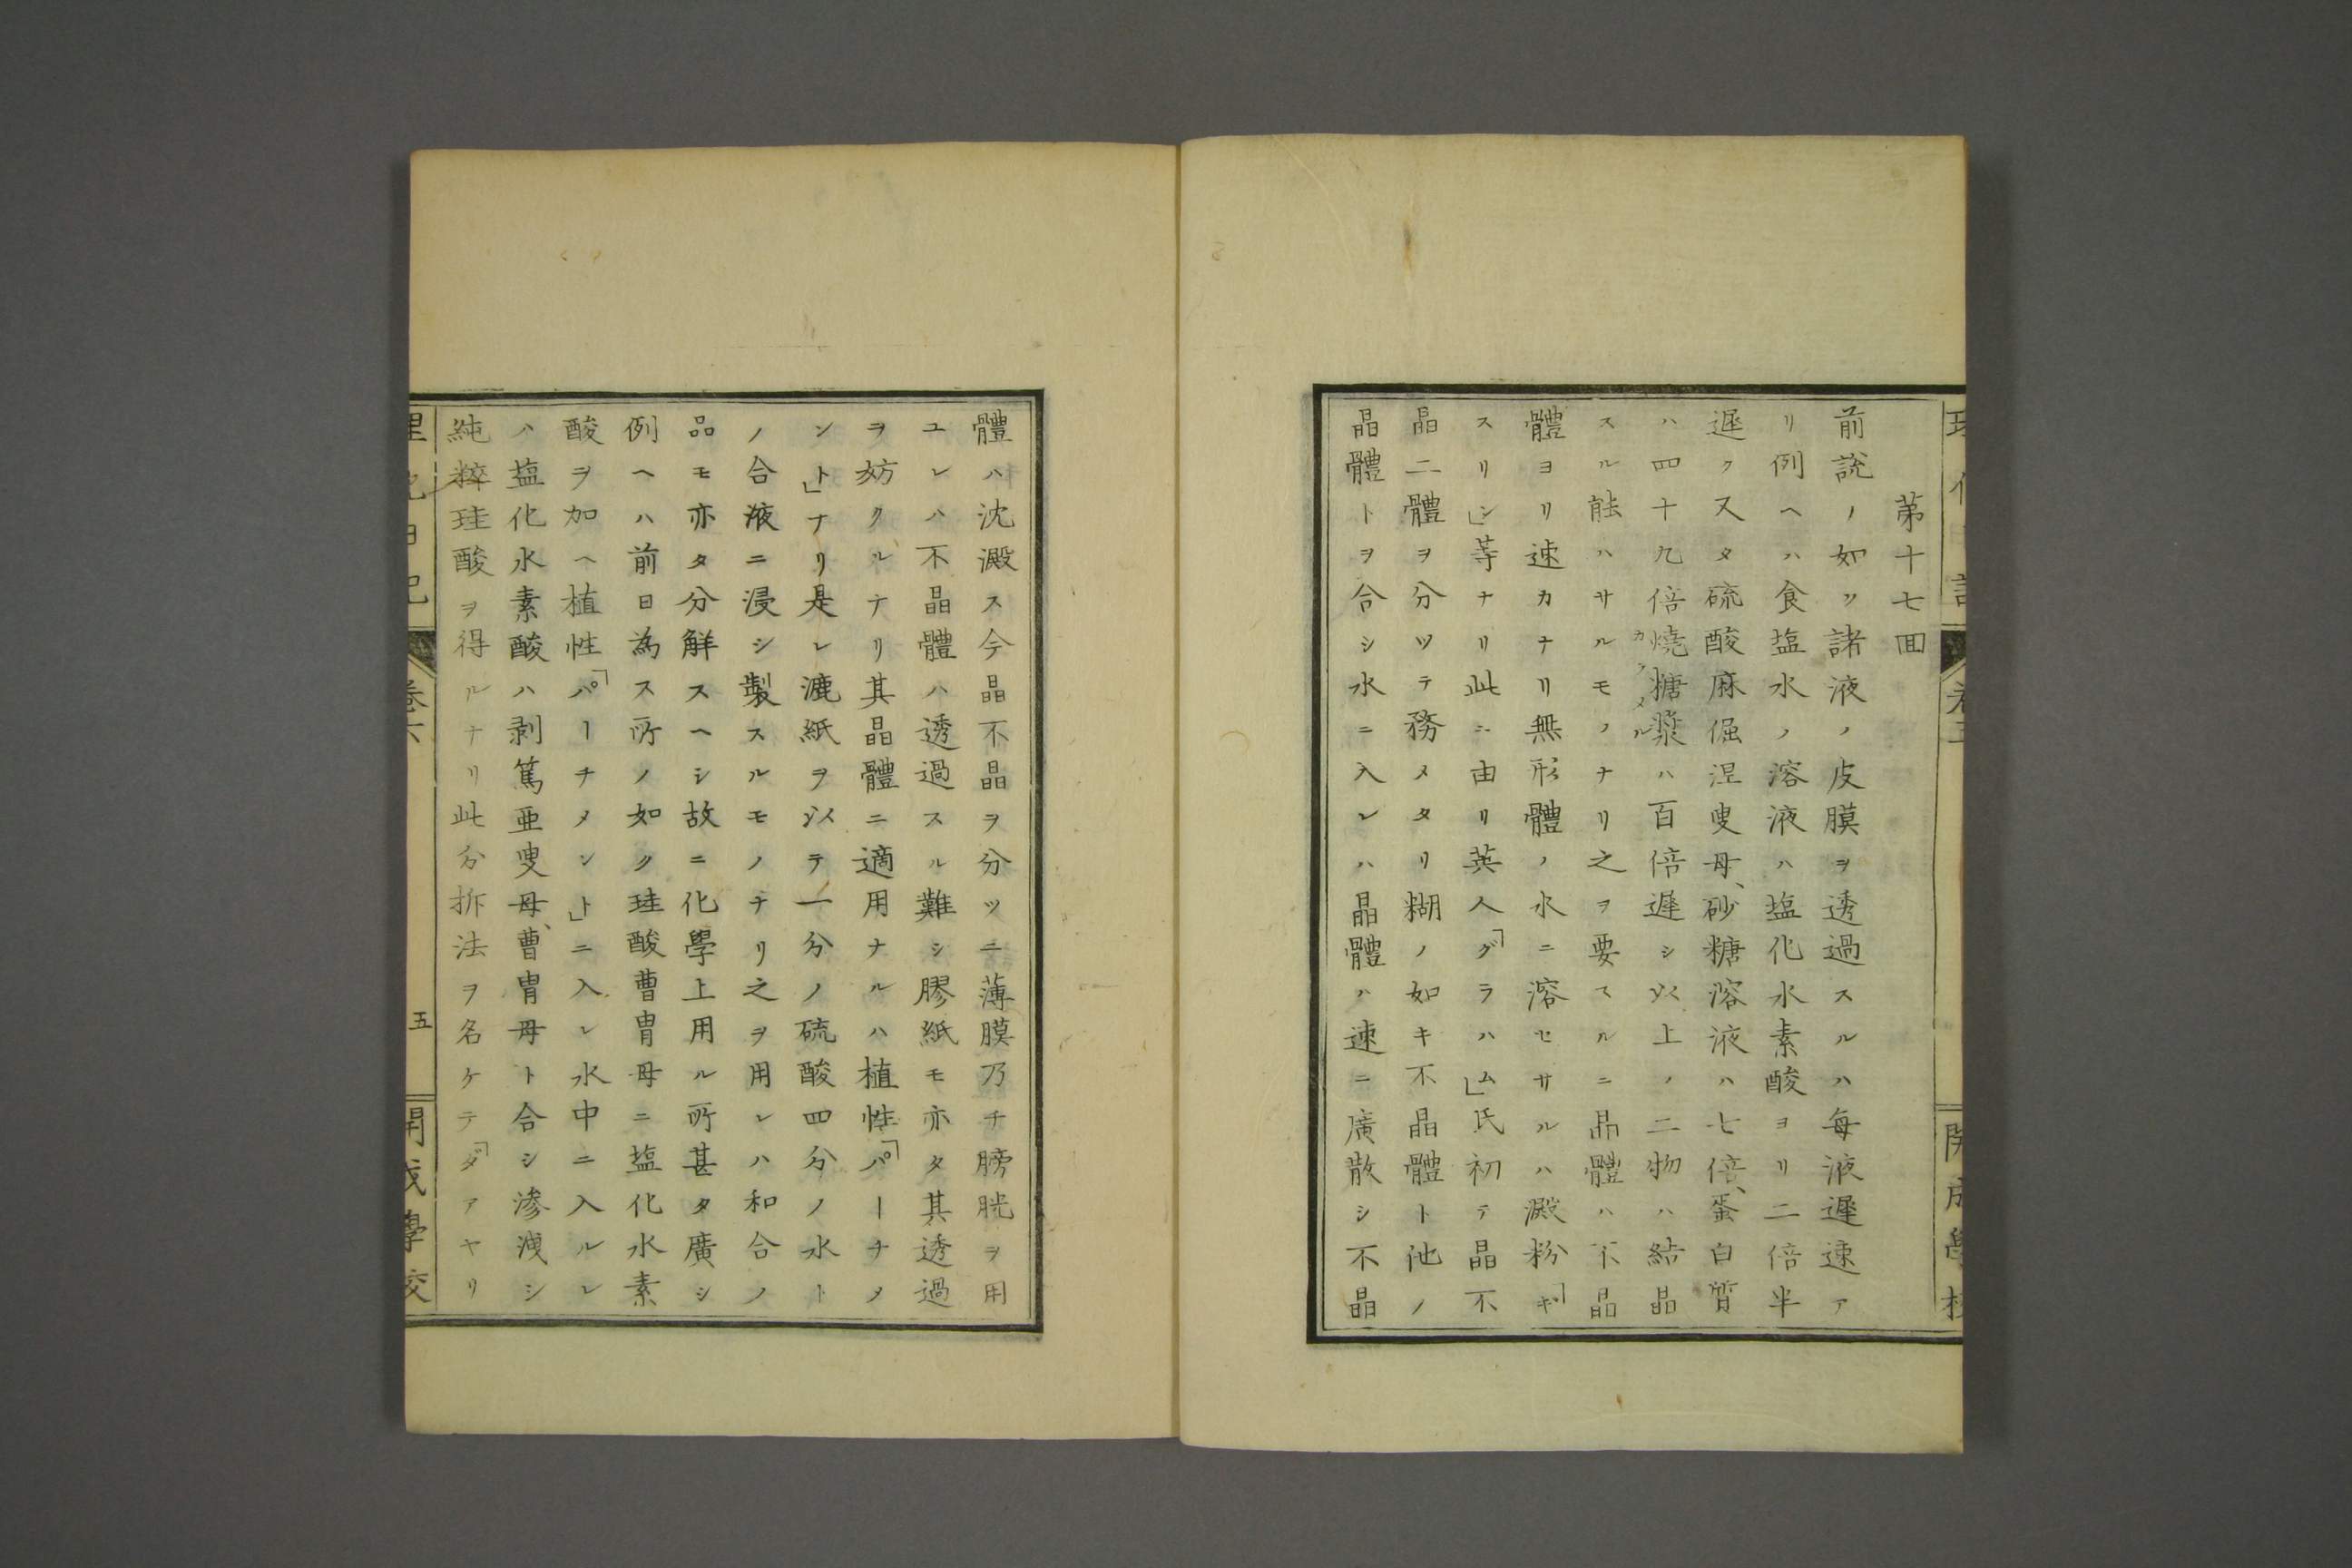 第十七囬
前説ノ如ク諸液ノ皮膜ヲ透過スルハ每液遲速ア
リ例ヘハ食塩水ノ溶液ハ塩化水素酸ヨリ二倍半
遲ク又タ硫酸麻倔涅叟母、砂糖溶液ハ七倍、蛋白質
ハ四十九倍燒糖漿ハ百倍遲シ以上ノ二物ハ結晶
カラメル
スル能ハサルモノナリ之ヲ要スルニ晶體ハ不晶
體ヨリ速カナリ無形體ノ水ニ溶セサルハ澱粉「ギ
スリシ」等ナリ此ニ由リ英人「グラハム」氏初テ晶不
晶二體ヲ分ツテ務メタリ糊ノ如キ不晶體ト他ノ
晶體トヲ合シ水ニ入レハ晶體ハ速ニ廣散シ不晶
體ハ沈澱ス今晶不晶ヲ分ツニ薄膜乃チ膀胱ヲ用
ユレハ不晶體ハ透過スル難シ膠紙モ亦タ其透過
ヲ妨クルナリ其晶體ニ適用ナルハ植性「パーチメ
ント」ナリ是レ漉紙ヲ以テ一分ノ硫酸四分ノ水ト
ノ合液ニ浸シ製スルモノナリ之ヲ用レハ和合ノ
品モ亦タ分解スヘシ故ニ化學上用ル所甚タ廣シ
例ヘハ前日為ス所ノ如ク珪酸曹胄母ニ塩化水素
酸ヲ加ヘ植性「パーチメント」ニ入レ水中ニ入ルレ
ハ塩化水素酸ハ剥篤亜叟母、曹胄母ト合シ滲洩シ
純粹珪酸ヲ得ルナリ此分拆法ヲ名ケテ「ダアヤリ
五